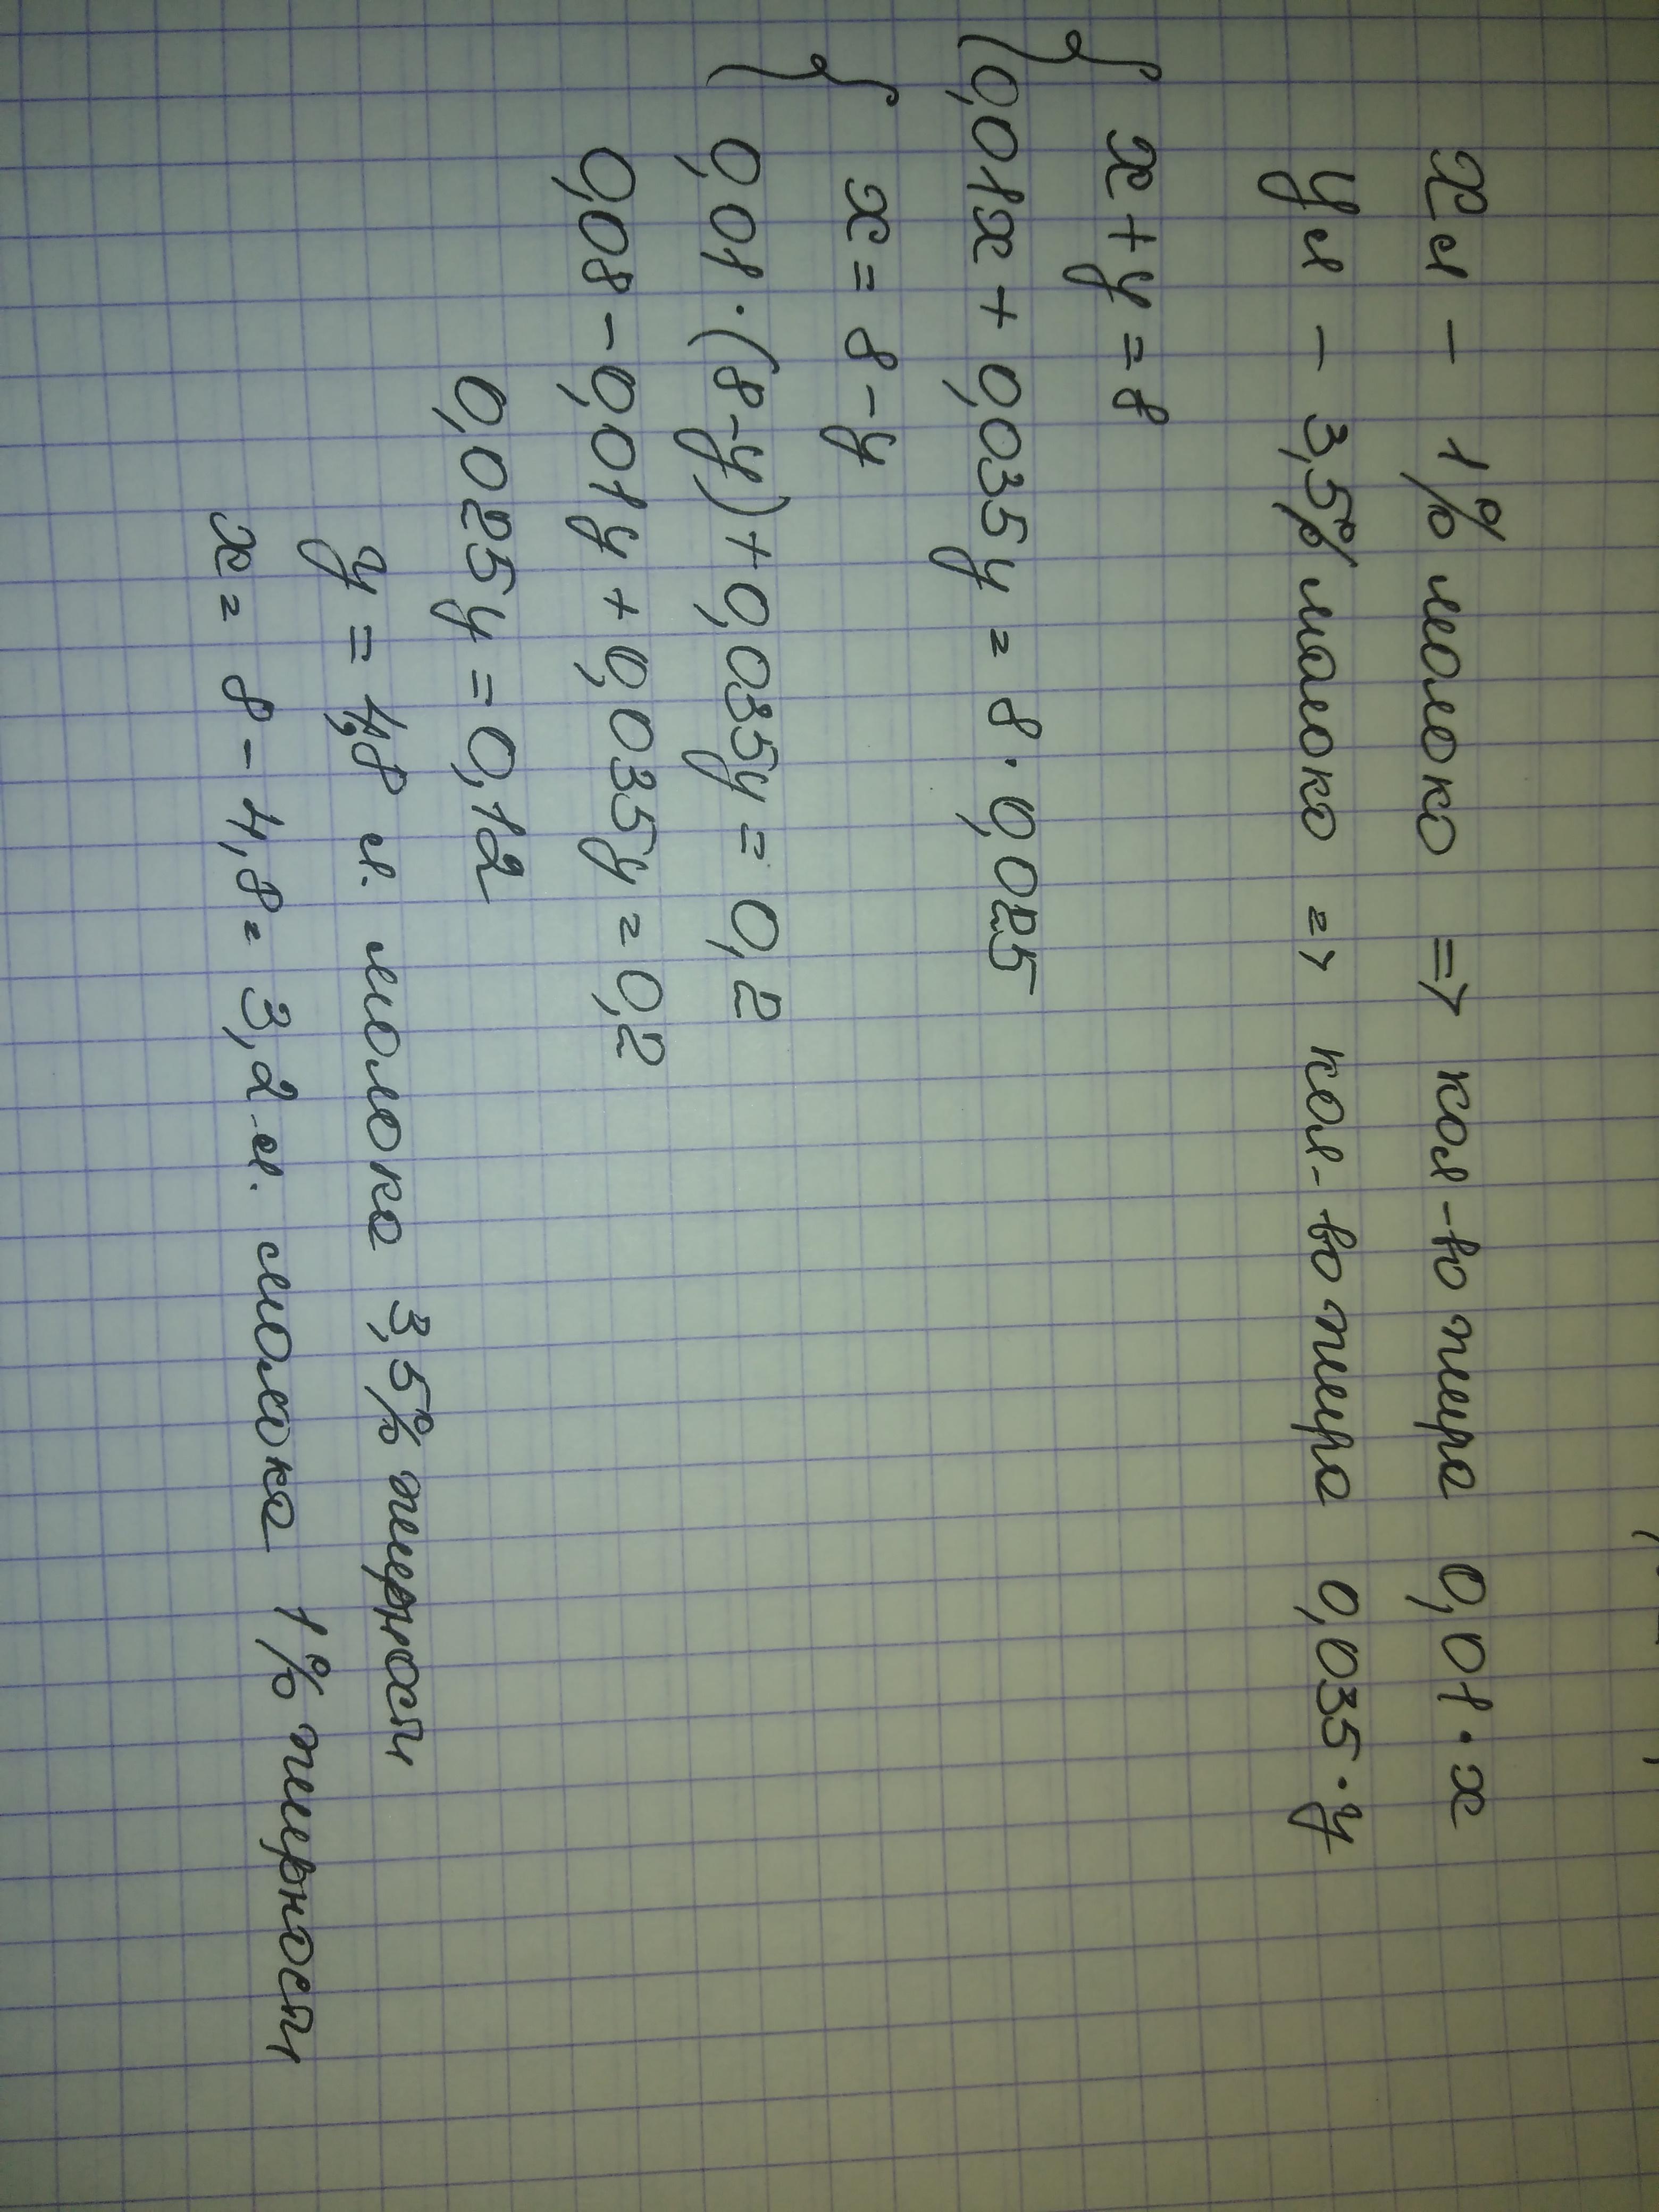 x л – 1% молоко => кол-во жира 0,01·x
y л – 3,5% молоко => кол-во жира 0,035·y
{ x+y=8
0,01x + 0,035y = 8·0,025
{ x = 8-y
0,01·(8-y)+0,035y = 0,2
0,08-0,01y+0,035y=0,2
0,025y=0,12
y = 4,8 л. молока 3,5% жирности
x = 8-4,8= 3,2 л. молока 1% жирности